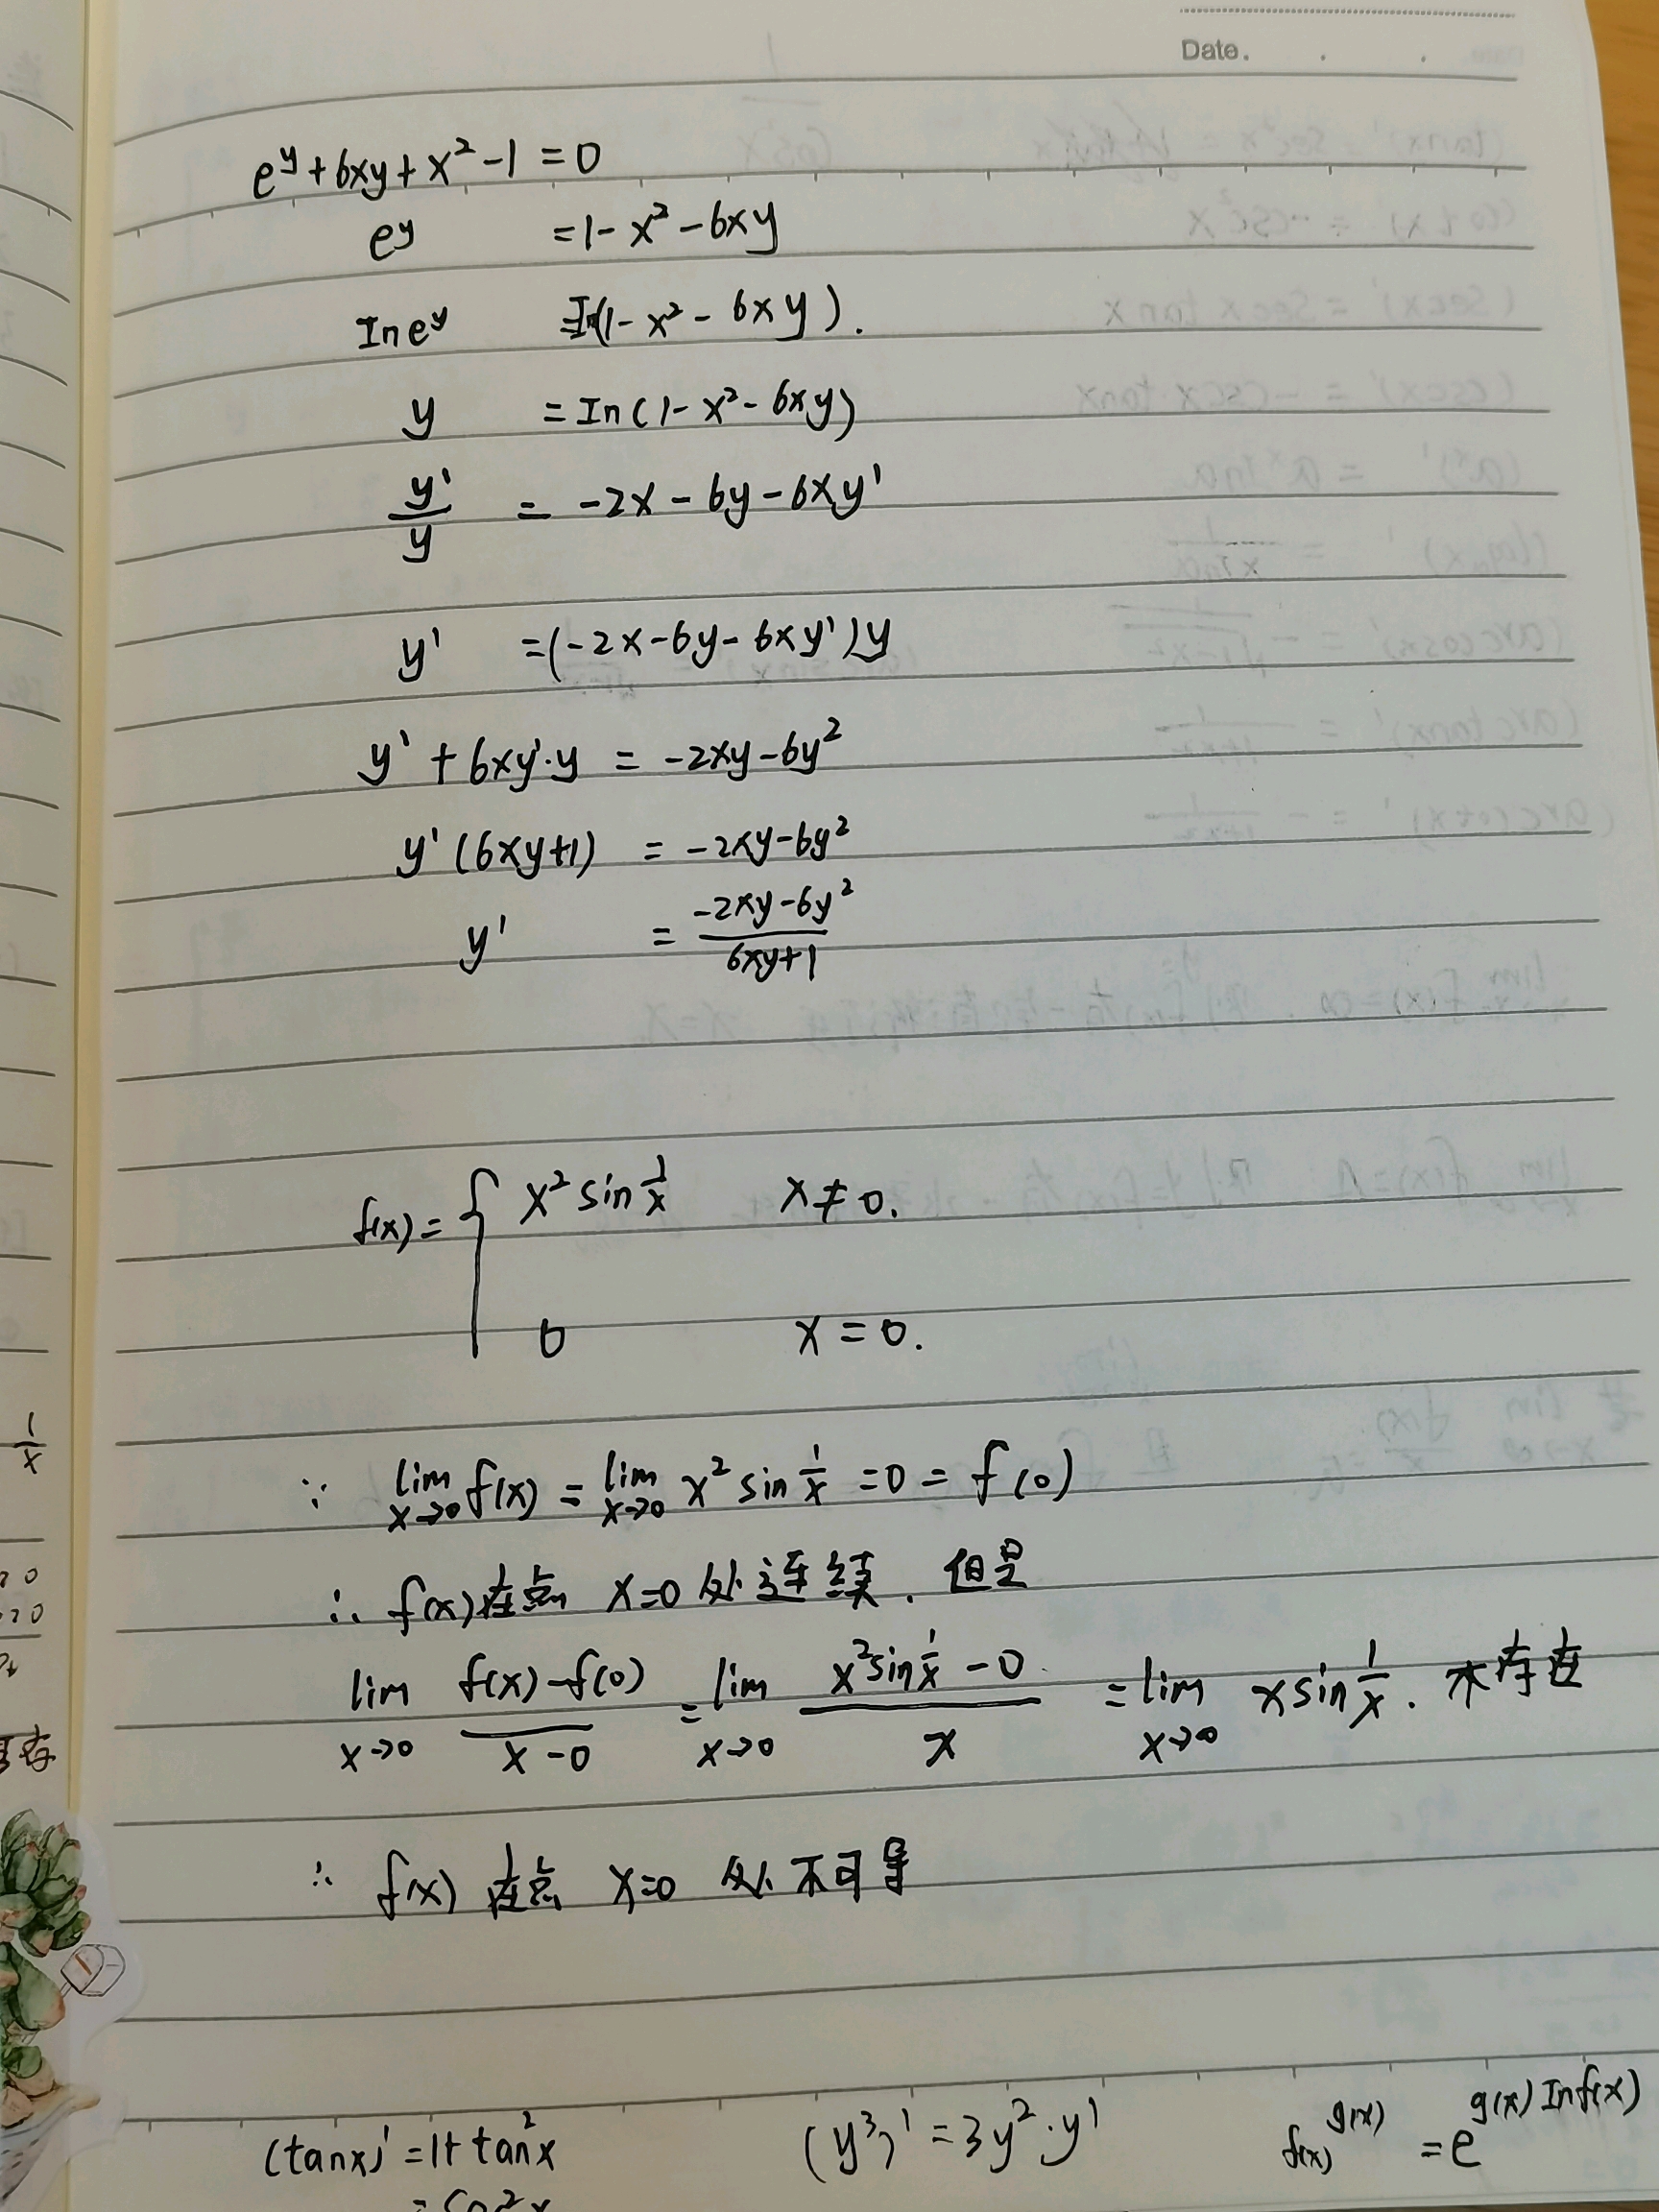 Date.
e^y + 6xy + x² - 1 = 0
e^y = 1 - x² - 6xy
In e^y = In(1 - x² - 6xy).
y = In(1 - x² - 6xy)
y'/y = -2x - 6y - 6xy'
y' = (-2x - 6y - 6xy')y
y' + 6xy'·y = -2xy - 6y²
y'(6xy+1) = -2xy - 6y²
y' = (-2xy - 6y²)/(6xy+1)
f(x) = { x² sin 1/x x ≠ 0.
0 x = 0.
∵ lim x→0 f(x) = lim x→0 x² sin 1/x = 0 = f(0)
∴ f(x)在点 x=0 处连续. 但是
lim x→0 (f(x) - f(0))/(x - 0) = lim x→0 (x² sin 1/x - 0)/x = lim x→0 x sin 1/x. 不存在
∴ f(x) 在点 x=0 处不可导
(tanx)' = 1 + tan²x
(y³)' = 3y²·y'
f(x)^g(x) = e^g(x) In f(x)
1/x